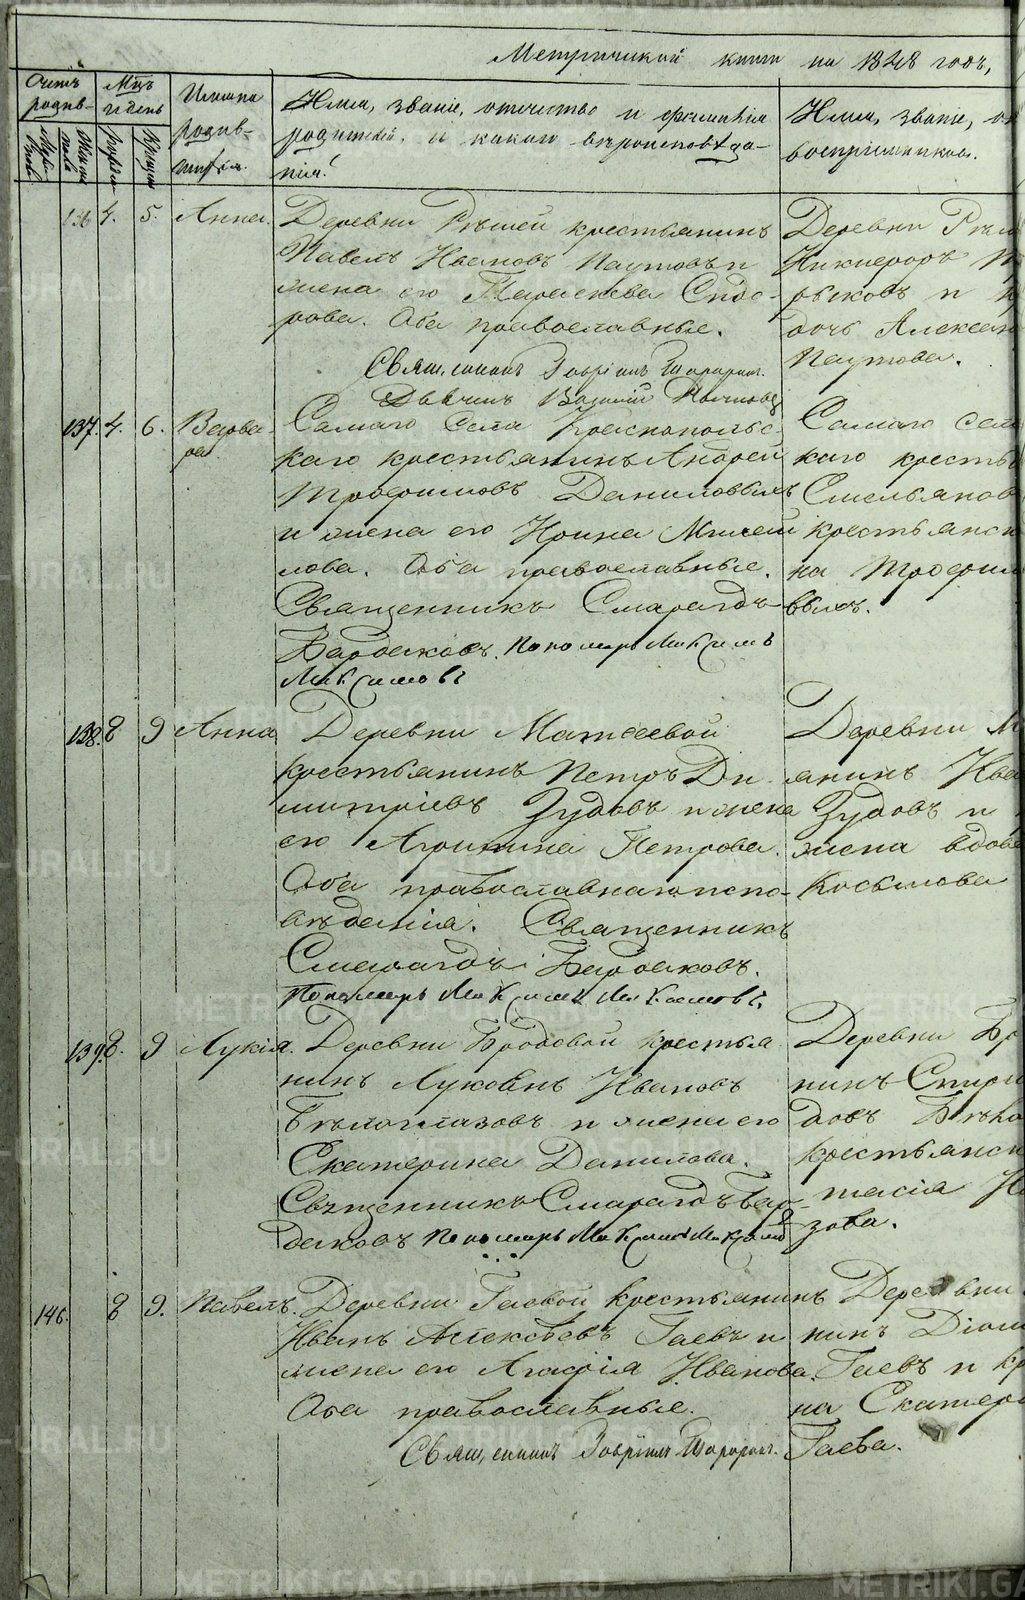 Метрической книги на 1848 годъ,
Счетъ родив-
Мцъ и день
Имена родив-
шихся.
Имя, званіе, отечество и фамилія
родителей, и какого вѣроисповѣда-
нія.
Имя, званіе,
воспріемниковъ.
136 4. 5. Анна.
Деревни крестьянинъ
Павелъ Ивановъ Паутовъ и
жена его Параскева Сидо-
рова. Оба православные.
Священникъ Гавріилъ
Дьячекъ Василій
Деревни
Никифоръ
рыковъ и
дочь Алексан
Паутова.
137. 4. 6. Варва-
ра.
Самаго Села Краснопольс-
каго крестьянинъ Андрей
Трофимовъ Даниловыхъ
и жена его Ирина Михай
лова. Оба православные.
Священникъ Смарагдъ
Бардаковъ. Пономарь Максимъ
Максимовъ
Самаго сел
каго кресть
Емельянов
крестьянск
на Трофим
выхъ.
138. 8 9 Анна
Деревни Матвеевой
крестьянинъ Петръ Ди
митріевъ Зудовъ и жена
его Агрипина Петрова.
Оба православнаго испо-
вѣданія. Священникъ
Смарагдъ Бардаковъ.
Пономарь Максимъ Максимовъ.
Деревни М
янинъ Ива
Зудовъ и
жена вдова
Косьмова
139. 8. 9 Лукія.
Деревни Бродовой крестья
нинъ Лукоянъ Ивановъ
Бѣлоглазовъ и жена его
Екатерина Данилова.
Священникъ Смарагдъ Бар-
даковъ Пономарь Максимъ Максимовъ
Деревни Бр
нинъ Спири
довъ Бѣло
крестьянск
тасія Ив
зова.
140. 8 9. Павелъ.
Деревни Гаевой крестьянинъ
Иванъ Алексѣевъ Гаевъ и
жена его Агафія Иванова.
Оба православные.
Священникъ Гавріилъ
Деревни
нинъ Діом
Гаевъ и кр
на Екатери
Гаева.
METRIKI.GASO-URAL.RU